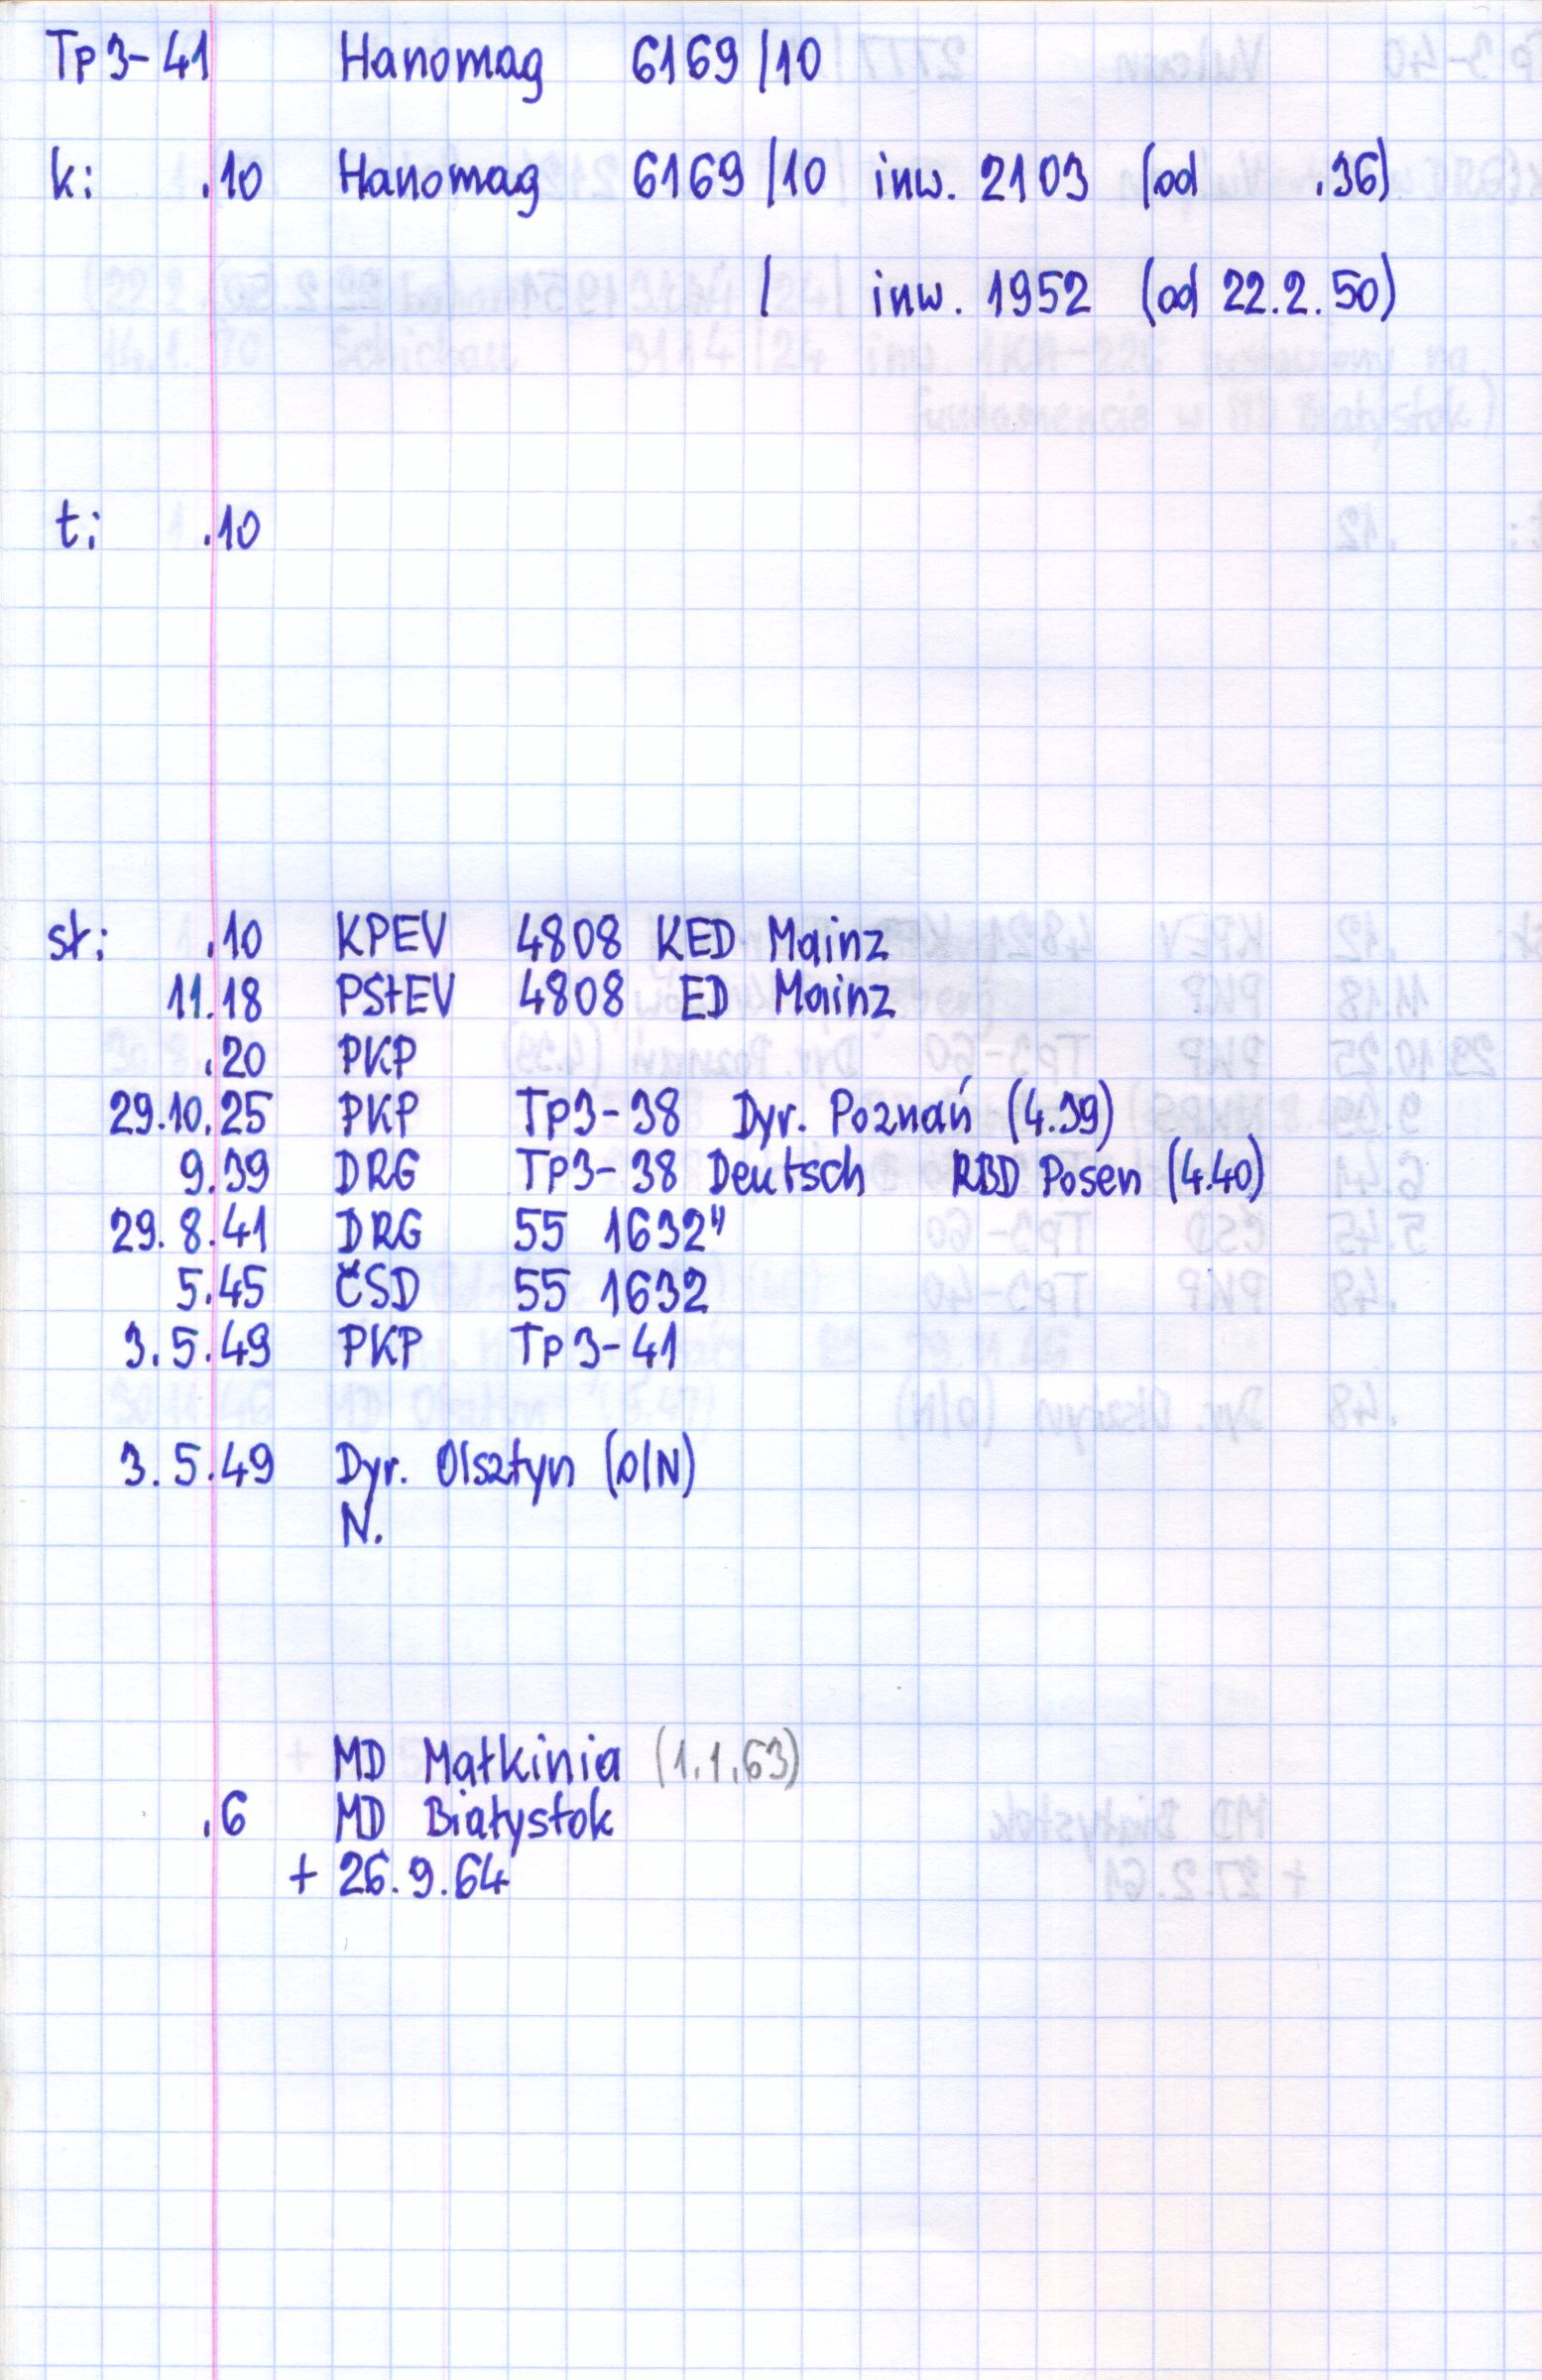 Tp3-41 Hanomag 6169/10
k: .10 Hanomag 6169/10 inw. 2103 (od .36)
/ inw. 1952 (od 22.2.50)
t: .10
st: .10 KPEV 4808 KED Mainz
11.18 PStEV 4808 ED Mainz
.20 PKP
29.10.25 PKP Tp3-38 Dyr. Poznań (4.39)
9.39 DRG Tp3-38 Deutsch RBD Posen (4.40)
29.8.41 DRG 55 1632"
5.45 ČSD 55 1632
3.5.49 PKP Tp3-41
3.5.49 Dyr. Olsztyn (O/N)
N.
MD Małkinia (1.1.63)
.6 MD Białystok
+ 26.9.64